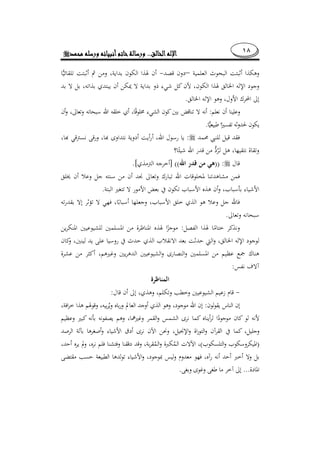 ١٨ الإله الخالق.. ورسالة خاتم أنبيائه ورسله محمد ﷺ
وهكذا أثبتت البحوث العلمية –دون قصد– أن لهذا الكون بداية، ومن ثم أثبتت تلقائيًّا
وجود الإله الخالق لهذا الكون، لأن كل شيء ذو بداية لا يمكن أن يبتدي بذاته، بل لا بد
إلى المحرك الأول، وهو الإله الخالق.
وعلينا أن نعلم: أنه لا تناقض بين كون الشيء مخلوقًا، أي خلقه الله سبحانه وتعالى، وأن
يكون لحدوثه تفسيرًا طبيعيًّا.
فقد قيل للنبي محمد ﷺ: يا رسول الله، أرأيت أدوية نتداوى بها، ورقى نسترقي بها،
وتقاة نتقيها، هل تُردُّ من قدر الله شيئًا؟
قال ﷺ: ((هي من قدر الله)) [أخرجه الترمذي].
فمن مشاهدتنا لمخلوقات الله تبارك وتعالى نجد أن من سنته جل وعلا أن يخلق
الأشياء بأسباب، وأن هذه الأسباب تكون في بعض الأمور لا تتغير البتة.
فالله جل وعلا هو الذي خلق الأسباب، وجعلها أسبابًا، فهي لا تؤثر إلا بقدرته
سبحانه وتعالى.
ونذكر ختامًا لهذا الفصل: موجزًا لهذه المناظرة من المسلمين للشيوعيين المنكرين
لوجود الإله الخالق، والتي حدثت بعد الانقلاب الذي حدث في روسيا على يد لينين، وكان
هناك جمع عظيم من المسلمين والنصارى والشيوعيين الدهريين وغيرهم، أكثر من عشرة
آلاف نفس:
المناظرة
– قام زعيم الشيوعيين وخطب وتكلم، وهذى، إلى أن قال:
إن الناس يقولون: إن الله موجود، وهو الذي أوجد العالم ورباه ويُربيه، وقولهم هذا خرافة،
لأنه لو كان موجودًا لرأيناه كما نرى الشمس والقمر وغيرهما، وهم يصفونه بأنه كبير وعظيم
وجليل، كما في القرآن والتوراة والإنجيل، ونحن الآن نرى أدق الأشياء وأصغرها بآلة الرصد
(الميكروسكوب والتلسكوب)، الآلات المُكبرة والمُقربة، وقد دققنا وفتشنا فلم نره، ولم يره أحد،
بل ولا أخبر أحد أنه رآه، فهو معدوم وليس بموجود، والأشياء تولدها الطبيعة حسب مقتضى
المادة... إلى آخر ما طغى وغوى وبغى.